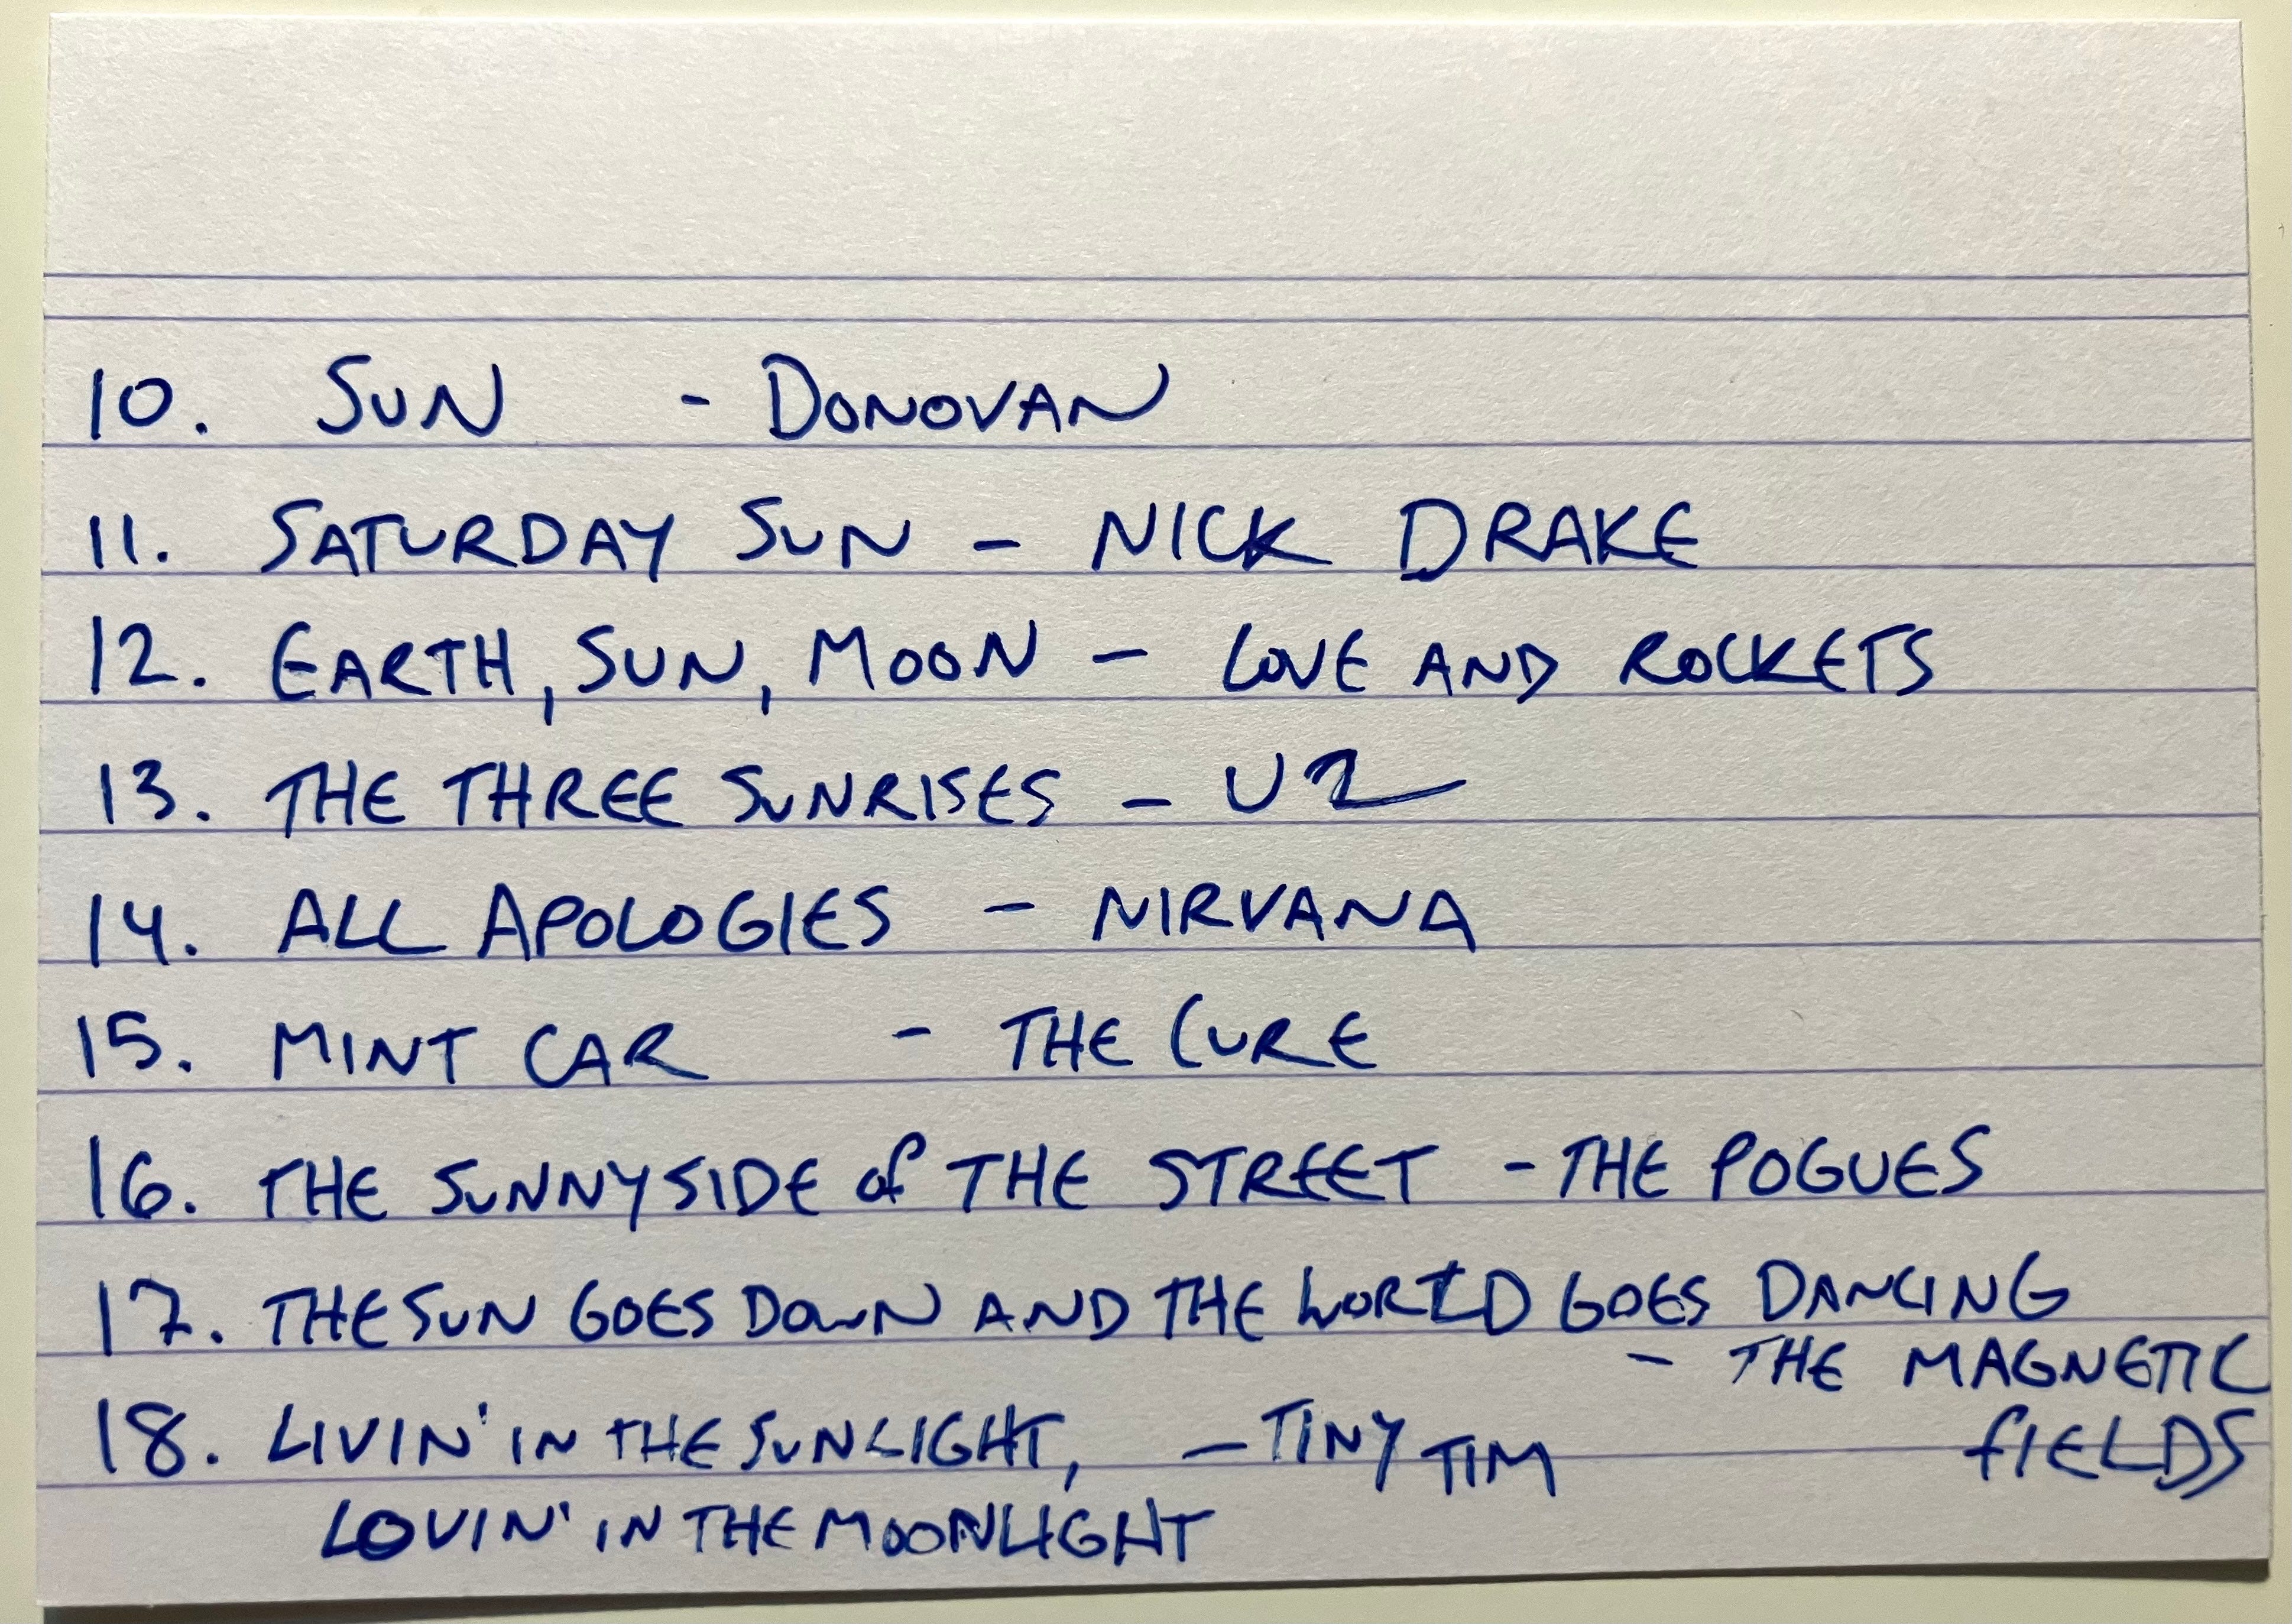 10. SUN - DONOVAN
11. SATURDAY SUN - NICK DRAKE
12. EARTH, SUN, MOON - LOVE AND ROCKETS
13. THE THREE SUNRISES - U2
14. ALL APOLOGIES - NIRVANA
15. MINT CAR - THE CURE
16. THE SUNNYSIDE of THE STREET - THE POGUES
17. THE SUN GOES DOWN AND THE WORLD GOES DANCING
- THE MAGNETIC
FIELDS
18. LIVIN' IN THE SUNLIGHT, - TINY TIM
LOVIN' IN THE MOONLIGHT